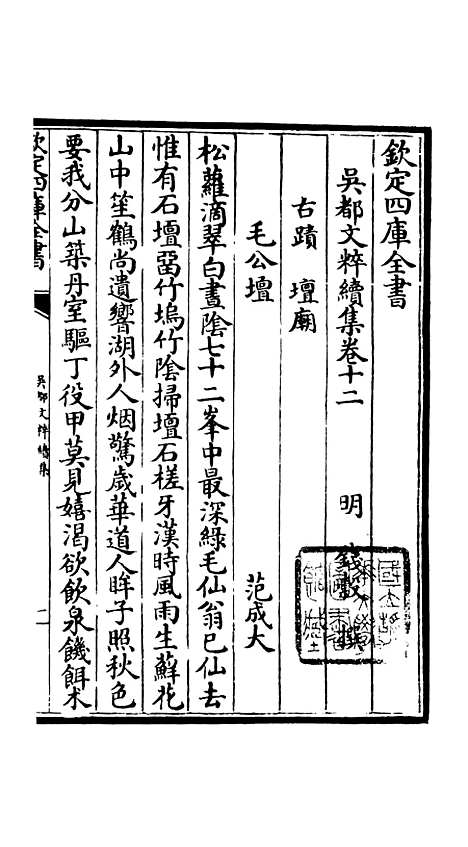 欽定四庫全書
吳都文粹續集卷十二
明 錢穀 撰
古蹟 壇廟
毛公壇 范成大
松蘿滴翠白晝陰七十二峯中最深綠毛仙翁已仙去
惟有石壇留竹塢竹陰掃壇石槎牙漢時風雨生蘚花
山中笙鶴尚遺響湖外人烟驚歲華道人眸子照秋色
要我分山築丹室驅丁役甲莫見嬉渴欲飲泉饑餌术
欽定四庫全書
吳都文粹續集